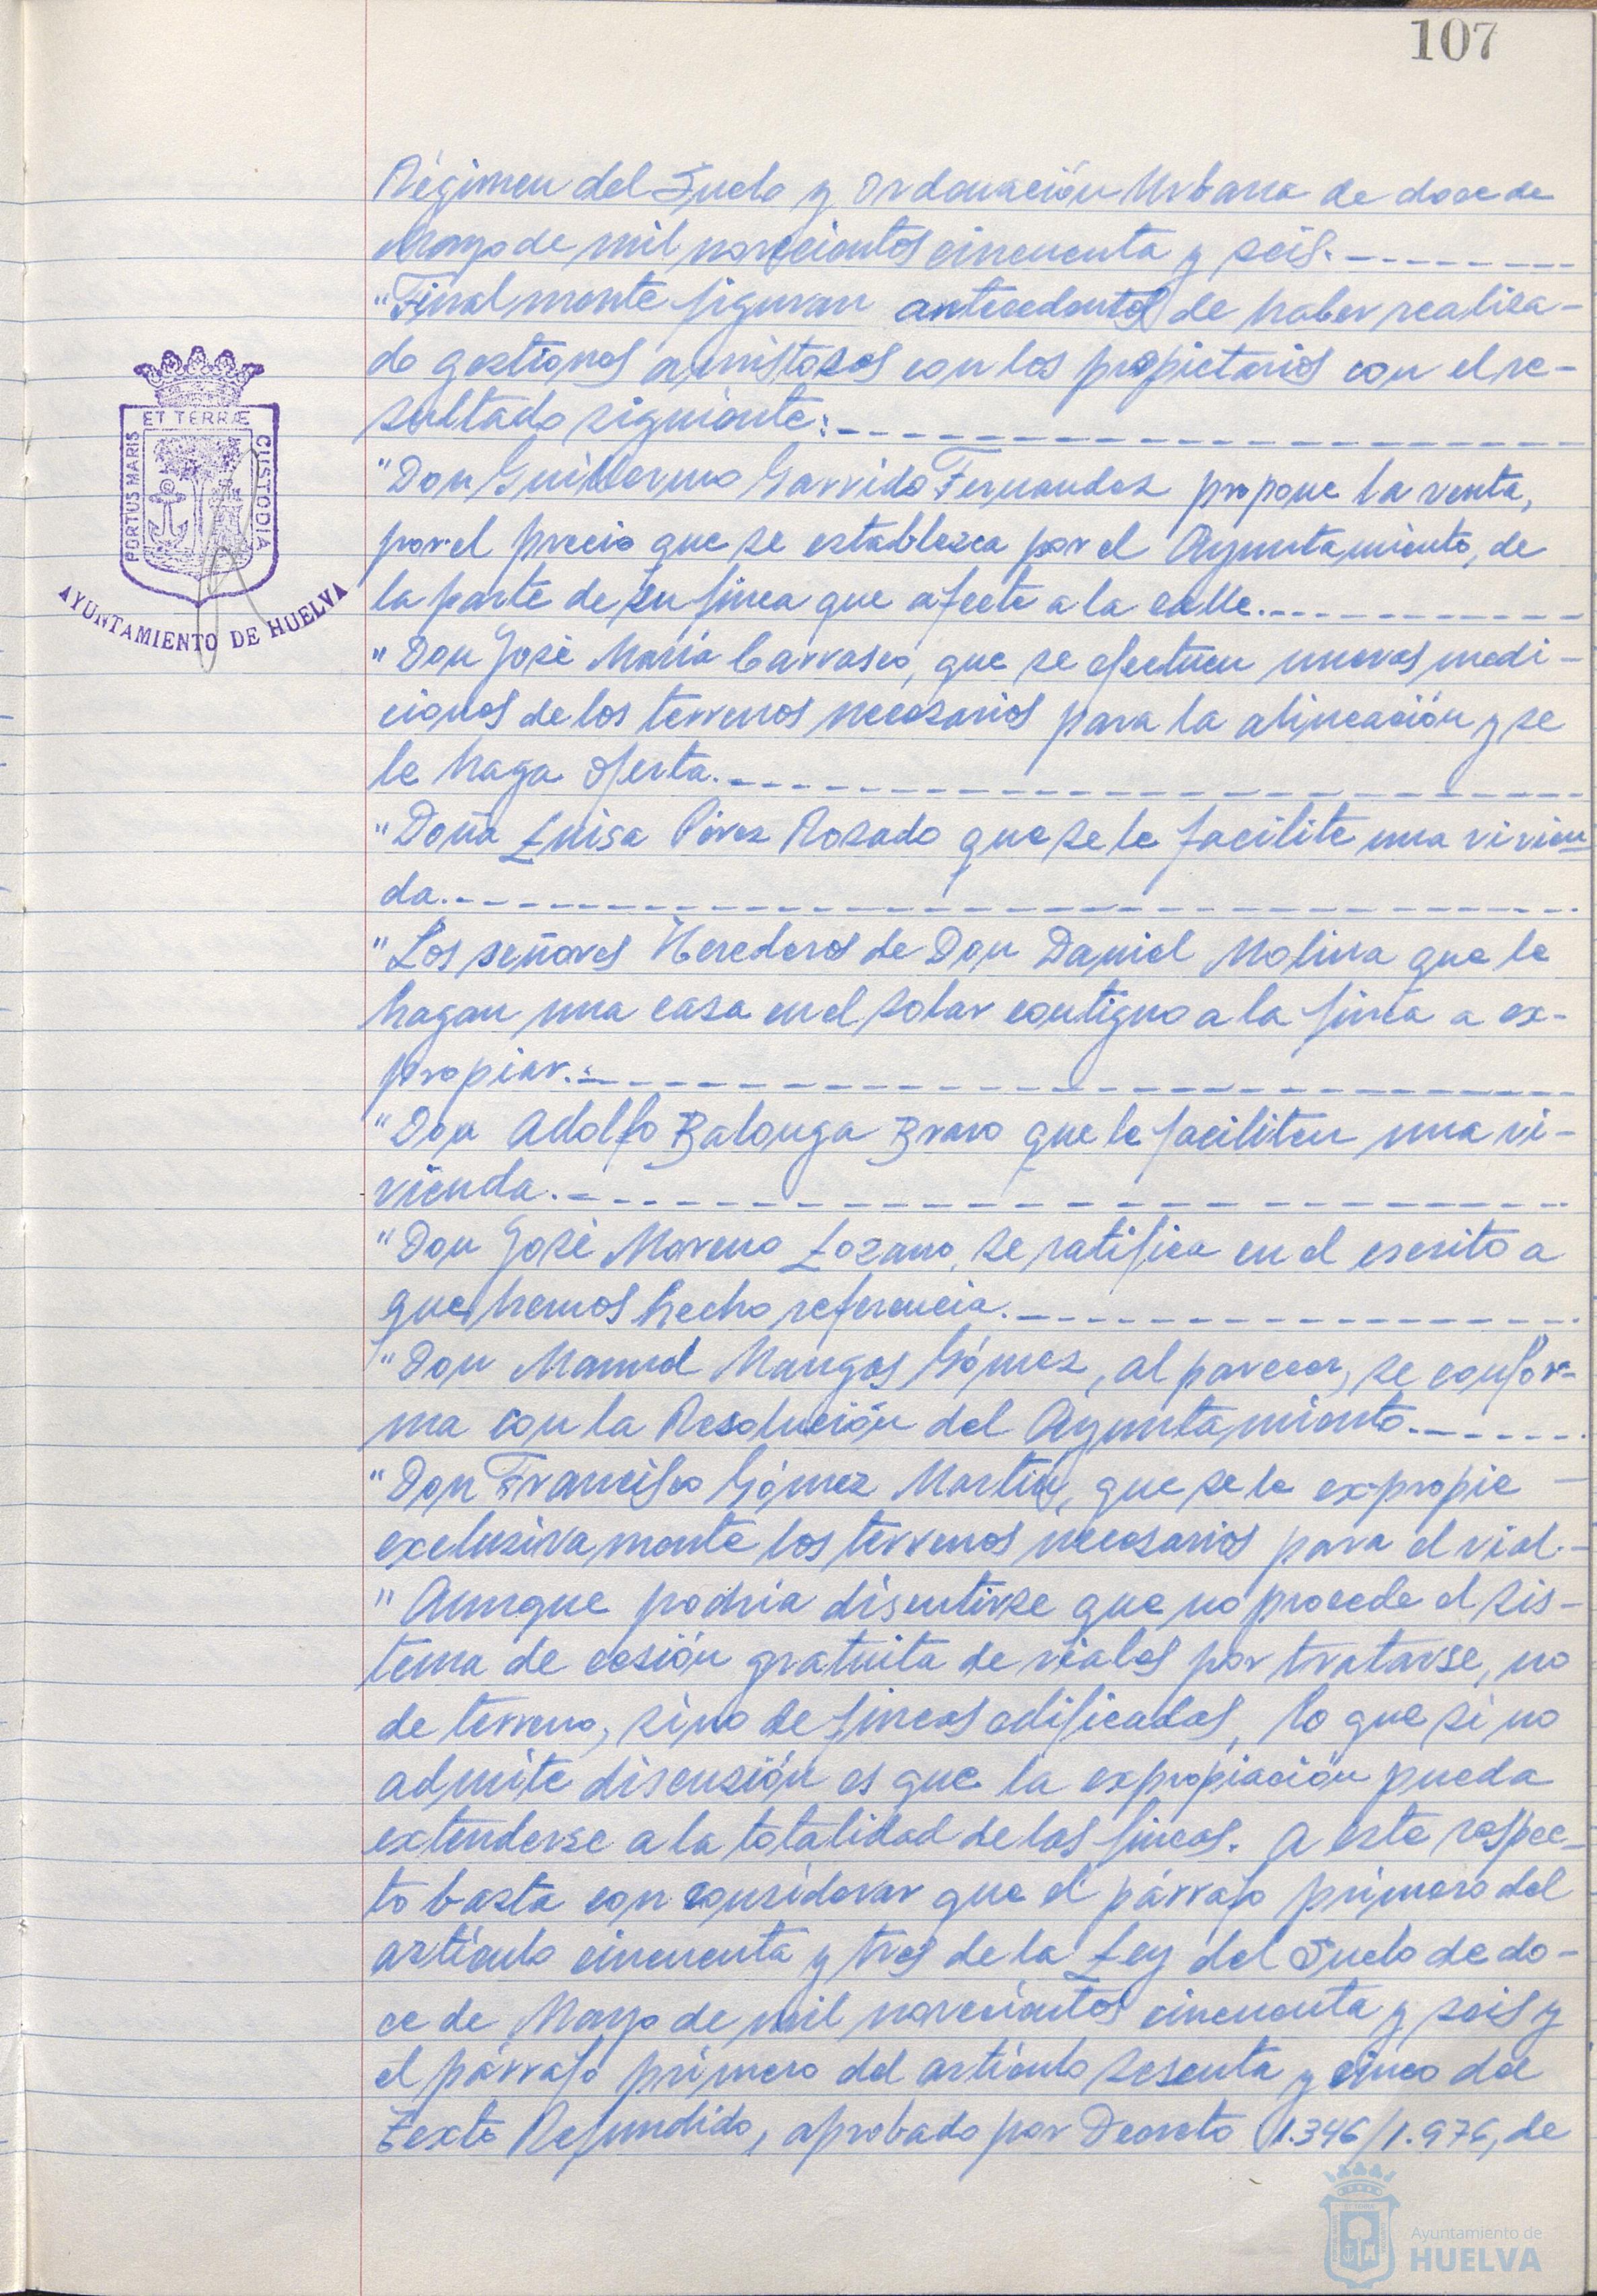 107
Régimen del Suelo y Ordenación Urbana de doce de
Mayo de mil novecientos cincuenta y seis.---------
"Finalmente figuran antecedentes de haber realiza-
do gestiones amistosas con los propietarios con el re-
sultado siguiente:---------
"Don Guillermo Garrido Fernandez propone la venta,
por el precio que se establezca por el Ayuntamiento, de
la parte de su finca que afecte a la calle.---------
"Don José María Carrasco, que se efectuen nuevas medi-
ciones de los terrenos necesarios para la alineación y se
le haga oferta.---------
"Doña Luisa Pérez Rosado que se le facilite una vivien
da.---------
"Los señores Herederos de Don Daniel Molina que le
hagan una casa en el solar contiguo a la finca a ex-
propiar.---------
"Don Adolfo Balonga Bravo que le faciliten una vi-
vienda.---------
"Don José Moreno Lozano, se ratifica en el escrito a
que hemos hecho referencia.---------
"Don Manuel Mangas Gómez, al parecer, se confor-
ma con la Resolución del Ayuntamiento.---------
"Don Francisco Gómez Martín, que se le expropie -
exclusivamente los terrenos necesarios para el vial.-
"Aunque podría discutirse que no procede el sis-
tema de cesión gratuita de viales por tratarse, no
de terreno, sino de fincas edificadas, lo que si no
admite discusión es que la expropiación pueda
extenderse a la totalidad de las fincas. A este respec-
to basta con considerar que el párrafo primero del
artículo cincuenta y tres de la Ley del Suelo de do-
ce de Mayo de mil novecientos cincuenta y seis y
el párrafo primero del artículo sesenta y cinco del
Texto Refundido, aprobado por Decreto 1.346/1.976, de
PORTUS MARIS
ET TERRÆ
CUSTODIA
AYUNTAMIENTO DE HUELVA
Ayuntamiento de
HUELVA